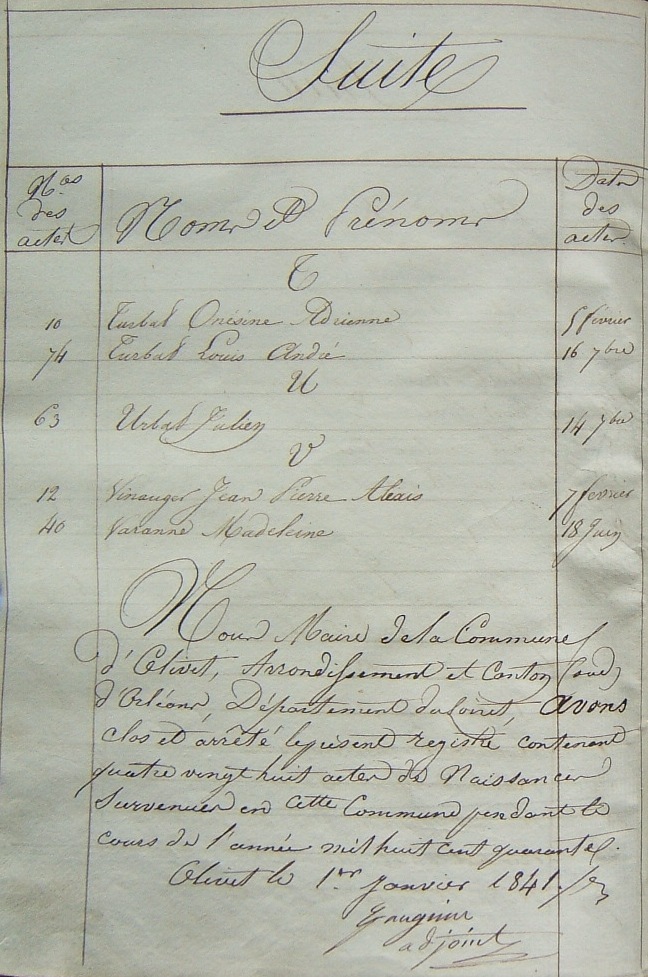 Suite
Nos des actes
Noms et Prénoms
Date des actes
T
10 Turbat Onésine Adrienne 5 février
74 Turbat Louis André 16 7bre
U
63 Urbat Julien 14 7bre
V
12 Vinauger Jean Pierre Alexis 7 fevrier
40 Varanne Madeleine 18 Juin
Nous Maire de la Commune
d'Olivet, Arrondissement et Canton (sud)
d'Orléans, Département du Loiret, avons
clos et arrêté le présent registre contenant
quatre vingt huit actes de Naissances
Survenues en cette Commune pendant le
cours de l'année mil huit cent quarante.
Olivet le 1er Janvier 1841
adjoint